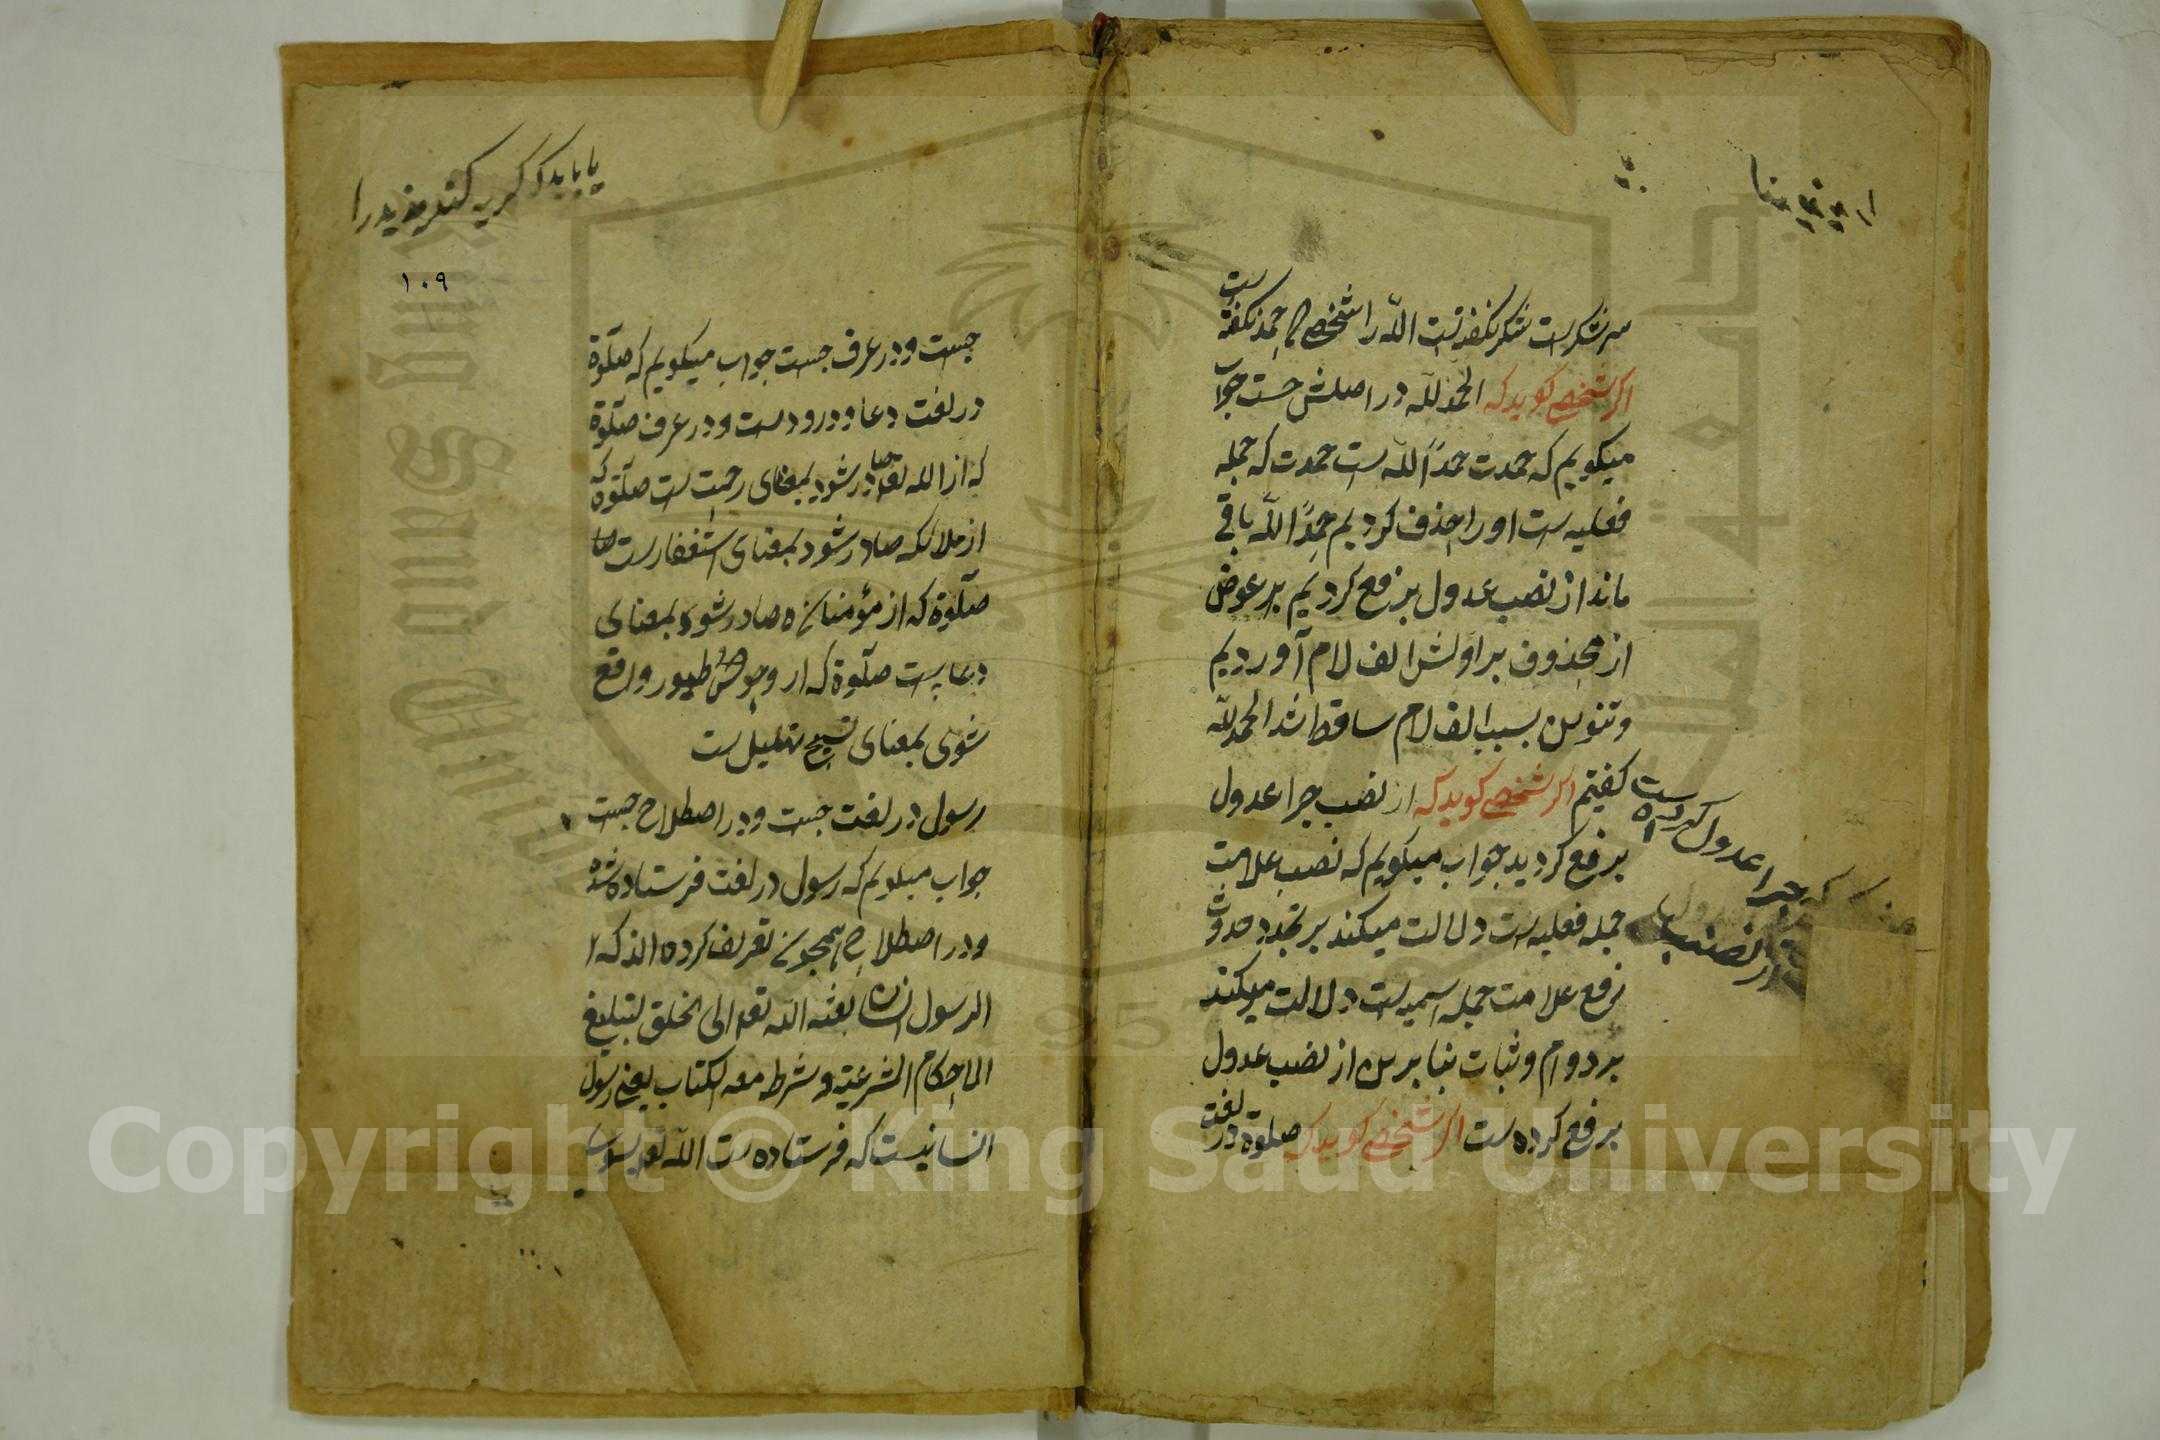 شکرست شکر نکفتست الله را شخصی که حمد نکفته ست
اکر شخصی کوید که الحمد لله در اصلش چست جواب
میکویم که حمدت حمدًا لله ست حمدت که جمله
فعلیه ست او را حذف کردیم حمدًا لله باقی
ماند از نصب عدول برفع کردیم بر عوض
از محذوف بر اولش الف لام آوردیم
و تنوین بسبب الف لام ساقط شد الحمد لله
کفتیم اکر شخصی کوید که از نصب چرا عدول
برفع کردید جواب میکویم که نصب علامت
جمله فعلیه ست دلالت میکند بر تجدد حدوث
رفع علامت جمله اسمیه ست دلالت میکند
بر دوام و ثبات بنا برین از نصب عدول
برفع کرده ست اکر شخصی کوید که صلوة در لغت
از نصب
چرا عدول کرده ست
را
١٠٩
چست و در عرف چست جواب میکویم که صلوة
در لغت دعا و درودست و در عرف صلوة
که از الله تعه صادر شود بمعنای رحمت ست صلوة که
از ملائکه صادر شود بمعنای استغفارست
صلوة که از مؤمنان صادر شود بمعنای
دعاست صلوة که از وحوش طیور واقع
شود بمعنای تسبیح تهلیل ست
رسول در لغت چست و در اصطلاح چست
جواب میکویم که رسول در لغت فرستاده شده
و در اصطلاح همچون تعریف کرده اند که
الرسول انسان بعثه الله تعه الی الخلق لتبلیغ
الاحکام الشرعیة و شرط معه الکتاب یعنی رسول
انسانیست که فرستاده ست الله تعه بسوی
Copyright © King Saud University